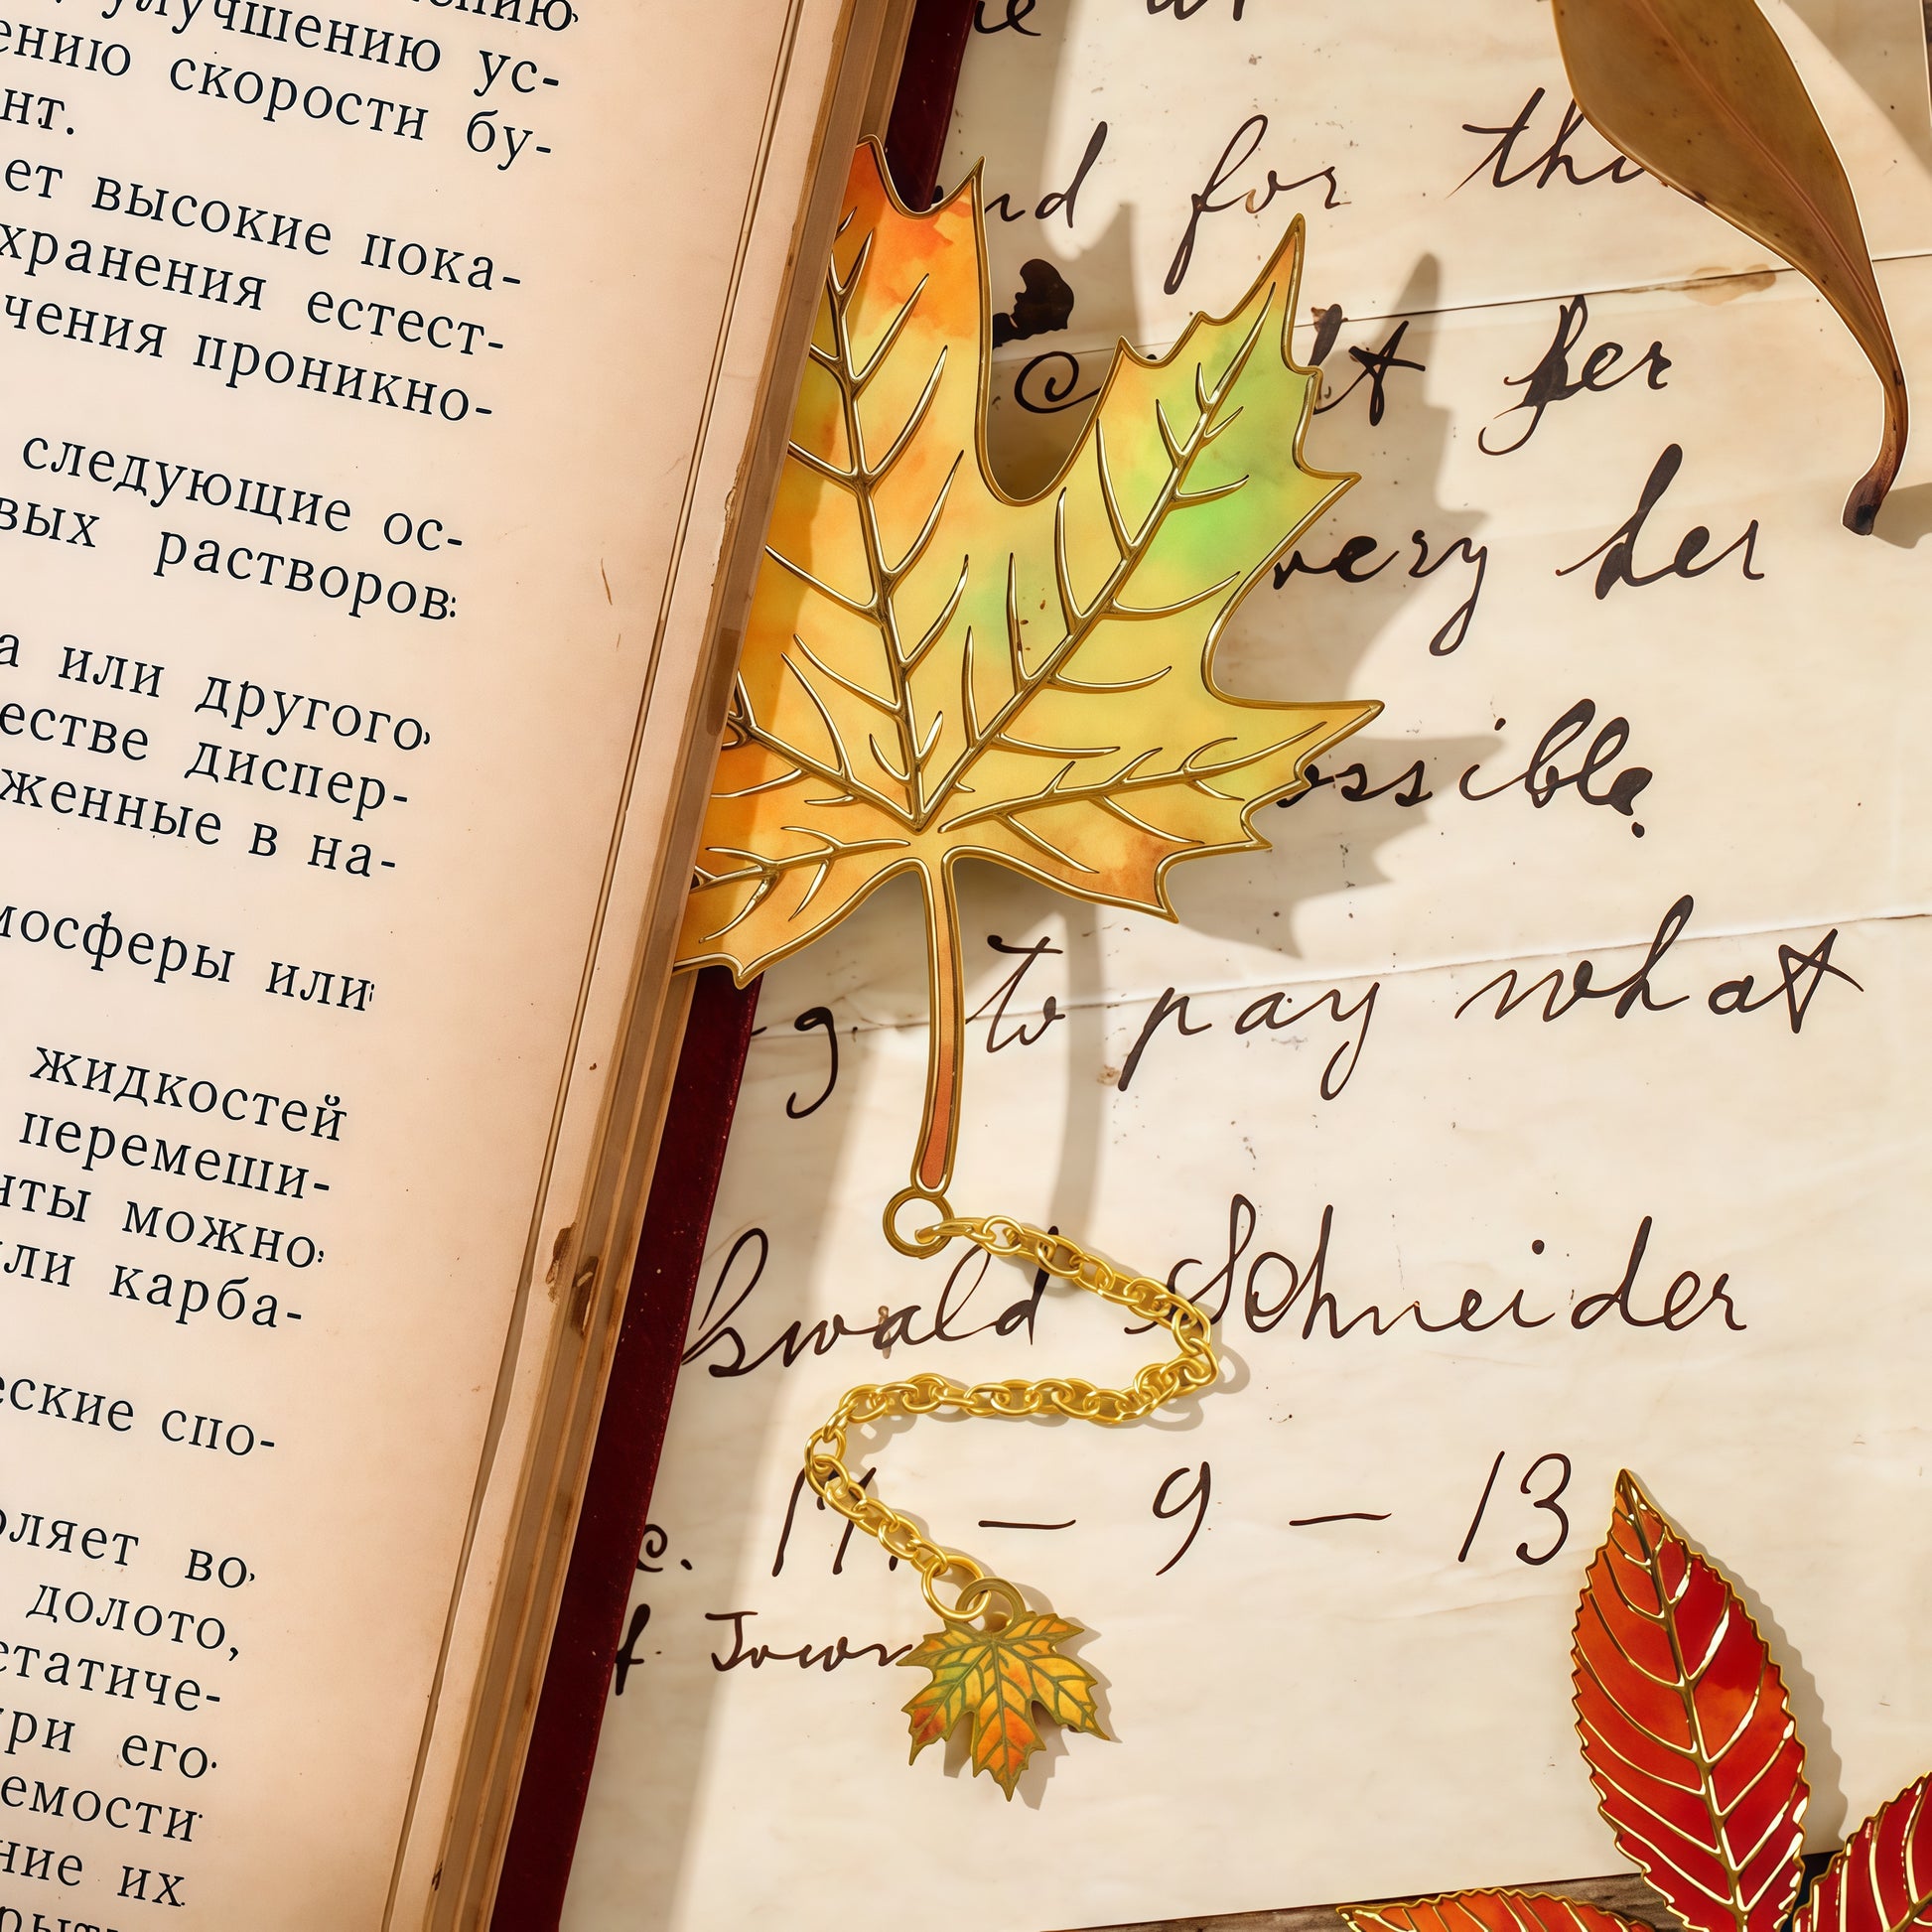 улучшению ус-
ению скорости бу-
нт.
ет высокие пока-
хранения естест-
чения проникно-
следующие ос-
вых растворов:
а или другого
естве диспер-
женные в на-
мосферы или
жидкостей
перемеши-
нты можно
ли карба-
еские спо-
оляет во
долото,
етатиче-
ри его
емости
ние их
nd for thi
lt her
very her
ossible
g. to pay what
Oswald Schneider
e. 17. — 9 — 13
f. Town